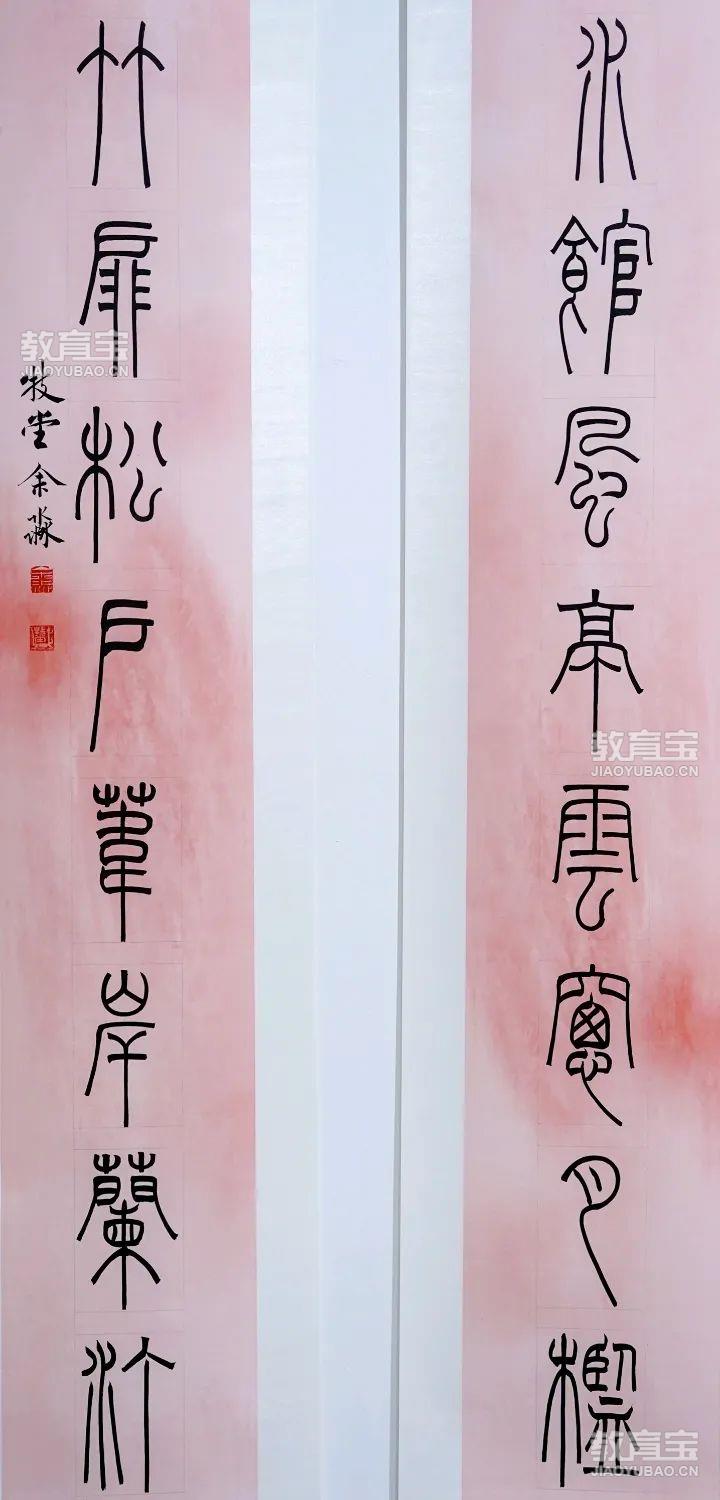 水館風亭雲窻月檻
竹扉松戶葦岸蘭汀
牧堂余淼
教育宝
JIAOYUBAO.CN
教育宝
JIAOYUBAO.CN
教育宝
JIAOYUBAO.CN